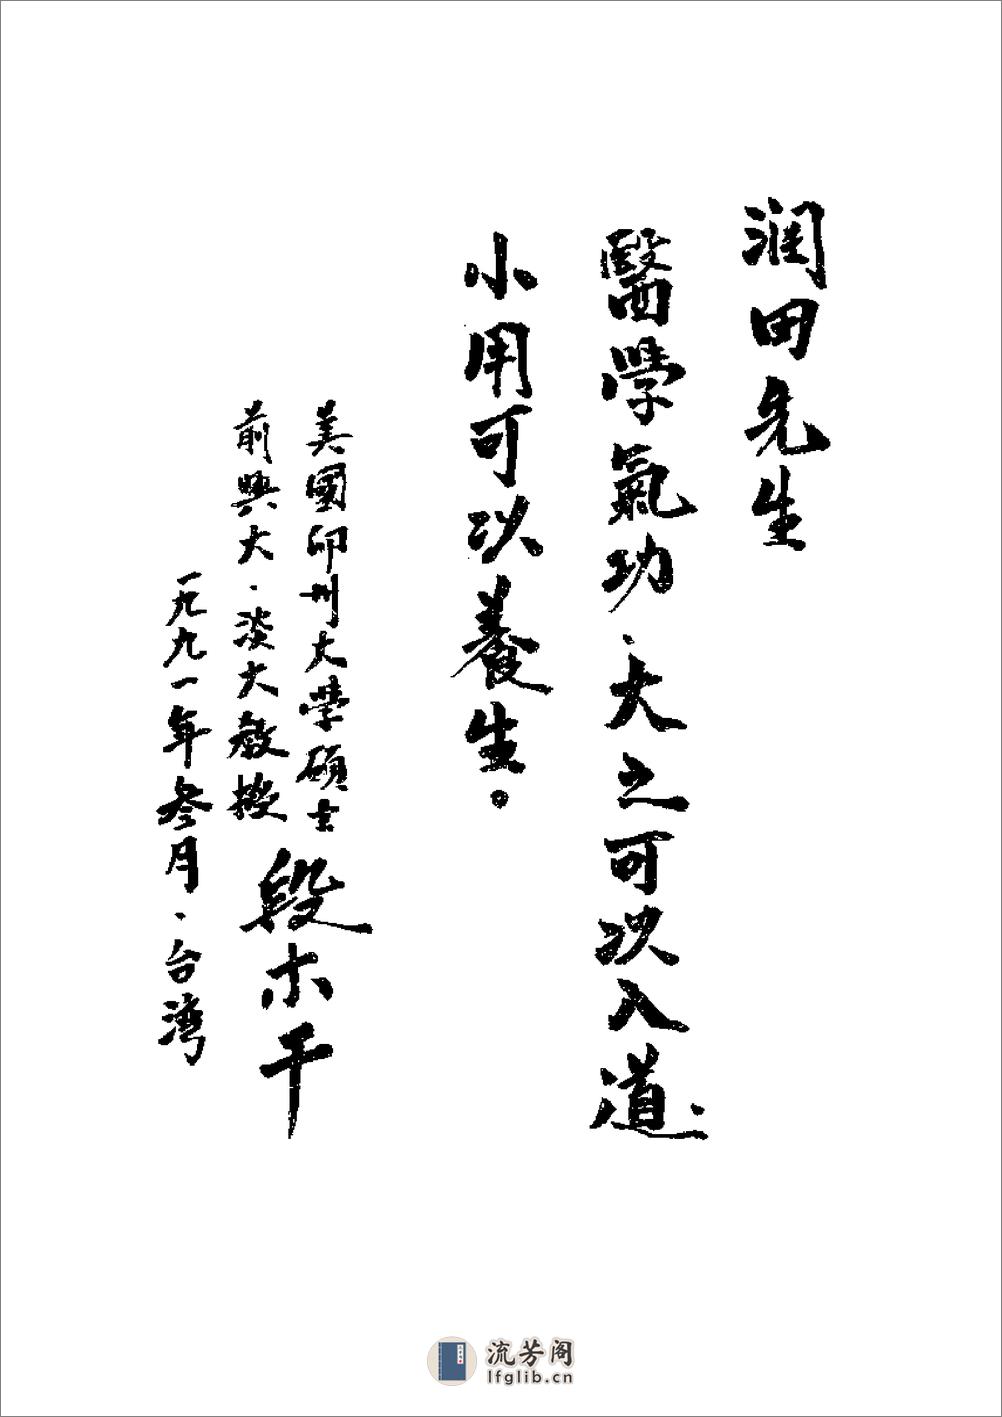 润田先生
醫學氣功、大之可以入道、
小用可以養生。
美國印州大學碩士
前興大、淡大教授
段木干
一九九一年叁月、台湾
流芳阁
lfglib.cn